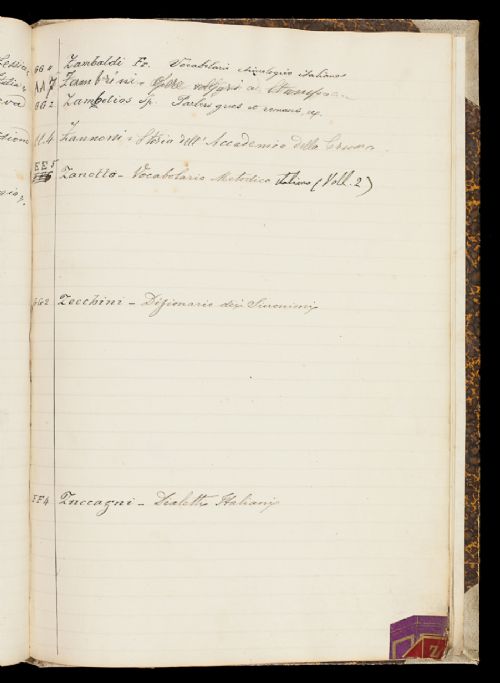 GG 4 Zambaldi Fr. Vocabolario etimologico italiano
AA 7 Zambrini - Opere volgari a stampa
GG 2 Zambelios Sp. Parlers grecs et romans,
ll. 4 Zannoni - Storia dell' Accademia della Crusca
EE 5
Zanotto - Vocabolario Metodico Italiano (Voll. 2)
GG 2 Zecchini - Dizionario dei Sinonimi
FF 4 Zuccagni - Dialetti Italiani
Z